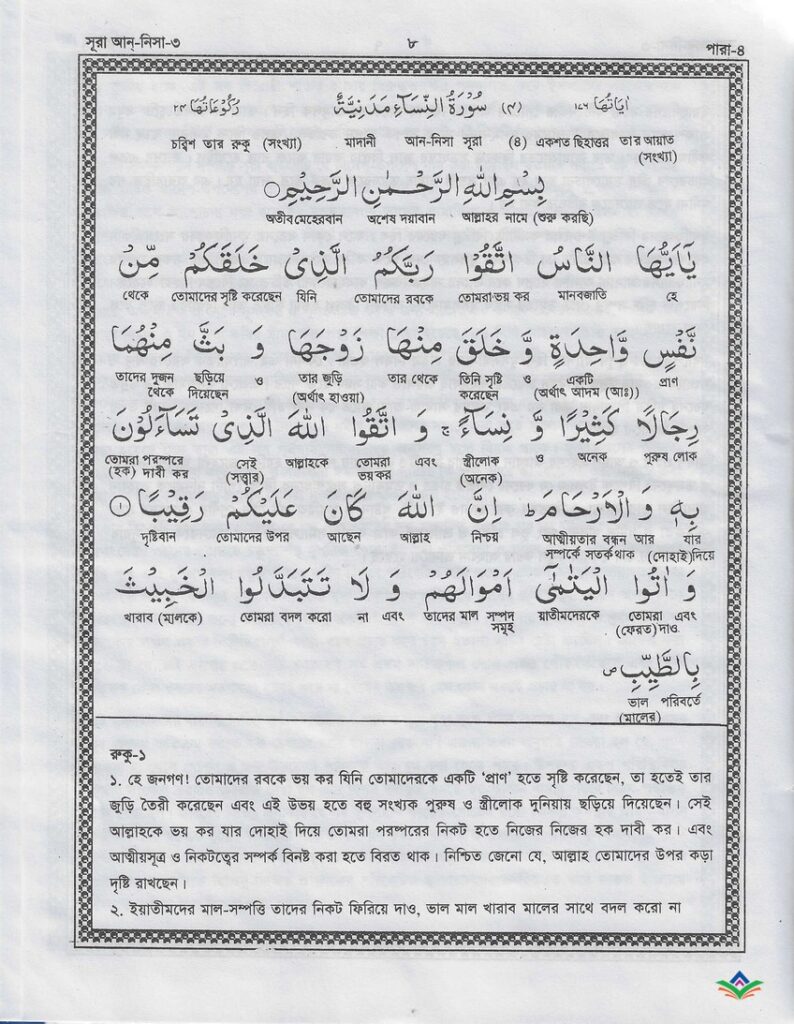 সূরা আন্-নিসা-৩ ৮ পারা-৪
اٰيَاتُهَا ١٧٦ (٤) سُوْرَةُ النِّسَآءِ مَدَنِيَّةٌ رُكُوْعَاتُهَا ٢٤
চব্বিশ তার রুকু (সংখ্যা) মাদানী আন-নিসা সূরা (৪) একশত ছিহাত্তর তার আয়াত
(সংখ্যা)
بِسْمِ اللهِ الرَّحْمٰنِ الرَّحِيْمِ ○
অতীব মেহেরবান অশেষ দয়াবান আল্লাহর নামে (শুরু করছি)
يٰۤاَيُّهَا النَّاسُ اتَّقُوْا رَبَّكُمُ الَّذِىْ خَلَقَكُمْ مِّنْ
থেকে তোমাদের সৃষ্টি করেছেন যিনি তোমাদের রবকে তোমরা ভয় কর মানবজাতি হে
نَّفْسٍ وَّاحِدَةٍ وَّ خَلَقَ مِنْهَا زَوْجَهَا وَ بَثَّ مِنْهُمَا
তাদের দুজন ছড়িয়ে ও তার জুড়ি তার থেকে তিনি সৃষ্টি ও একটি প্রাণ
থেকে দিয়েছেন (অর্থাৎ হাওয়া) করেছেন (অর্থাৎ আদম (আঃ))
رِجَالًا كَثِيْرًا وَّ نِسَآءً ۚ وَ اتَّقُوا اللهَ الَّذِىْ تَسَآءَلُوْنَ
তোমরা পরস্পরে সেই আল্লাহকে তোমরা এবং স্ত্রীলোক ও অনেক পুরুষ লোক
(হক) দাবী কর (সত্ত্বার) ভয় কর (অনেক)
بِهٖ وَ الْاَرْحَامَ ؕ اِنَّ اللهَ كَانَ عَلَيْكُمْ رَقِيْبًا ①
দৃষ্টিবান তোমাদের উপর আছেন আল্লাহ নিশ্চয় আত্মীয়তার বন্ধন আর যার
সম্পর্কে সতর্ক থাক (দোহাই) দিয়ে
وَ اٰتُوا الْيَتٰمٰٓى اَمْوَالَهُمْ وَ لَا تَتَبَدَّلُوا الْخَبِيْثَ
খারাব (মালকে) তোমরা বদল করো না এবং তাদের মাল সম্পদ য়াতীমদেরকে তোমরা এবং
সমূহ (ফেরত) দাও
بِالطَّيِّبِ ص
ভাল পরিবর্তে
(মালের)
রুকু-১
১. হে জনগণ! তোমাদের রবকে ভয় কর যিনি তোমাদেরকে একটি ‘প্রাণ’ হতে সৃষ্টি করেছেন, তা হতেই তার
জুড়ি তৈরী করেছেন এবং এই উভয় হতে বহু সংখ্যক পুরুষ ও স্ত্রীলোক দুনিয়ায় ছড়িয়ে দিয়েছেন। সেই
আল্লাহকে ভয় কর যার দোহাই দিয়ে তোমরা পরষ্পরের নিকট হতে নিজের নিজের হক দাবী কর। এবং
আত্মীয়সূত্র ও নিকটত্বের সম্পর্ক বিনষ্ট করা হতে বিরত থাক। নিশ্চিত জেনো যে, আল্লাহ তোমাদের উপর কড়া
দৃষ্টি রাখছেন।
২. ইয়াতীমদের মাল-সম্পত্তি তাদের নিকট ফিরিয়ে দাও, ভাল মাল খারাব মালের সাথে বদল করো না